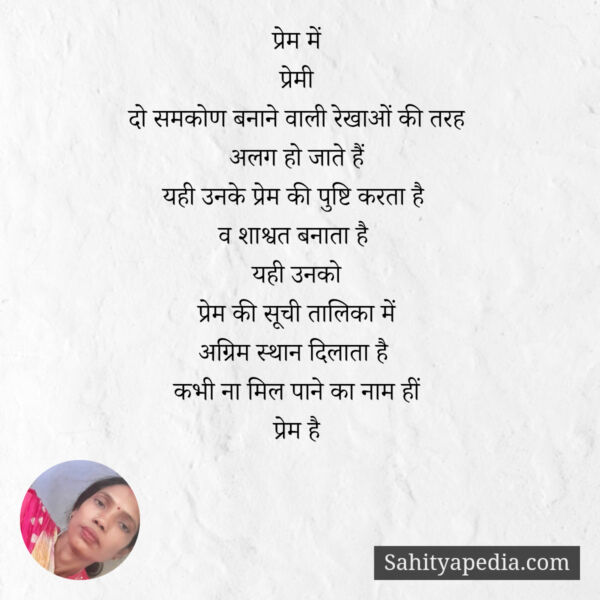 प्रेम में
प्रेमी
दो समकोण बनाने वाली रेखाओं की तरह
अलग हो जाते हैं
यही उनके प्रेम की पुष्टि करता है
व शाश्वत बनाता है
यही उनको
प्रेम की सूची तालिका में
अग्रिम स्थान दिलाता है
कभी ना मिल पाने का नाम हीं
प्रेम है
Sahityapedia.com